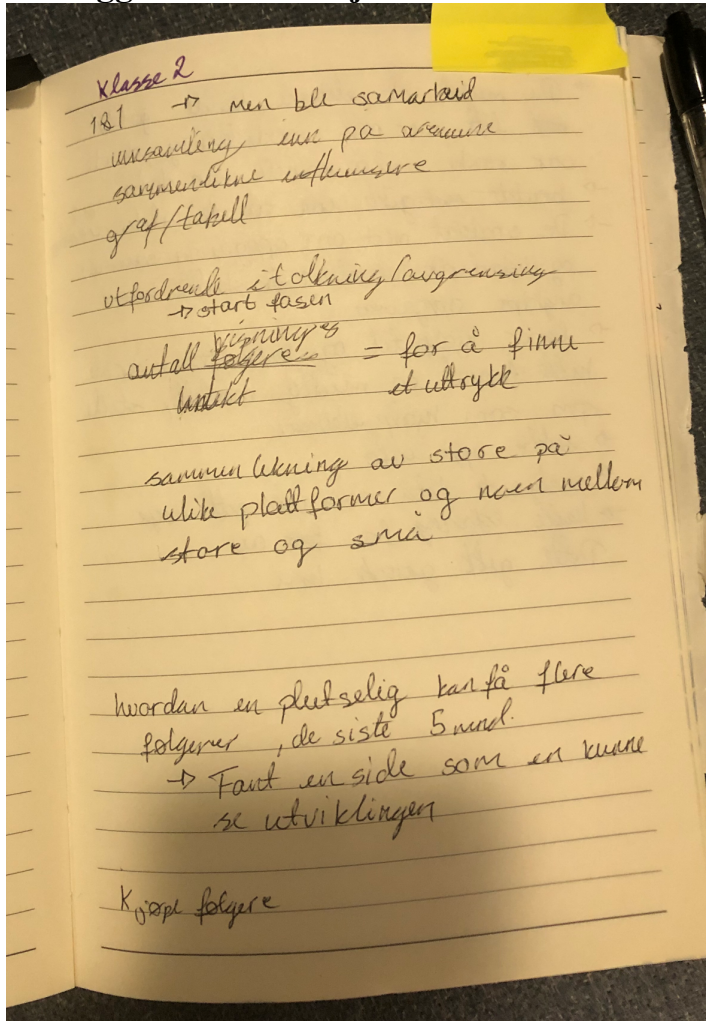 Klasse 2
1&1 → Men ble samarbeid
innsamling inn på arenaene
sammenlikne influensere
graf/tabell
utfordrende i tolkning/avgrensing
→ start fasen
visninger
antall følgere = for å finne
inntekt et uttrykk
sammenlikning av store på
ulike plattformer og noen mellom
store og små
hvordan en plutselig kan få flere
følgerer, de siste 5 mnd.
→ Fant en side som en kunne
se utviklingen
Kjøpe følgere